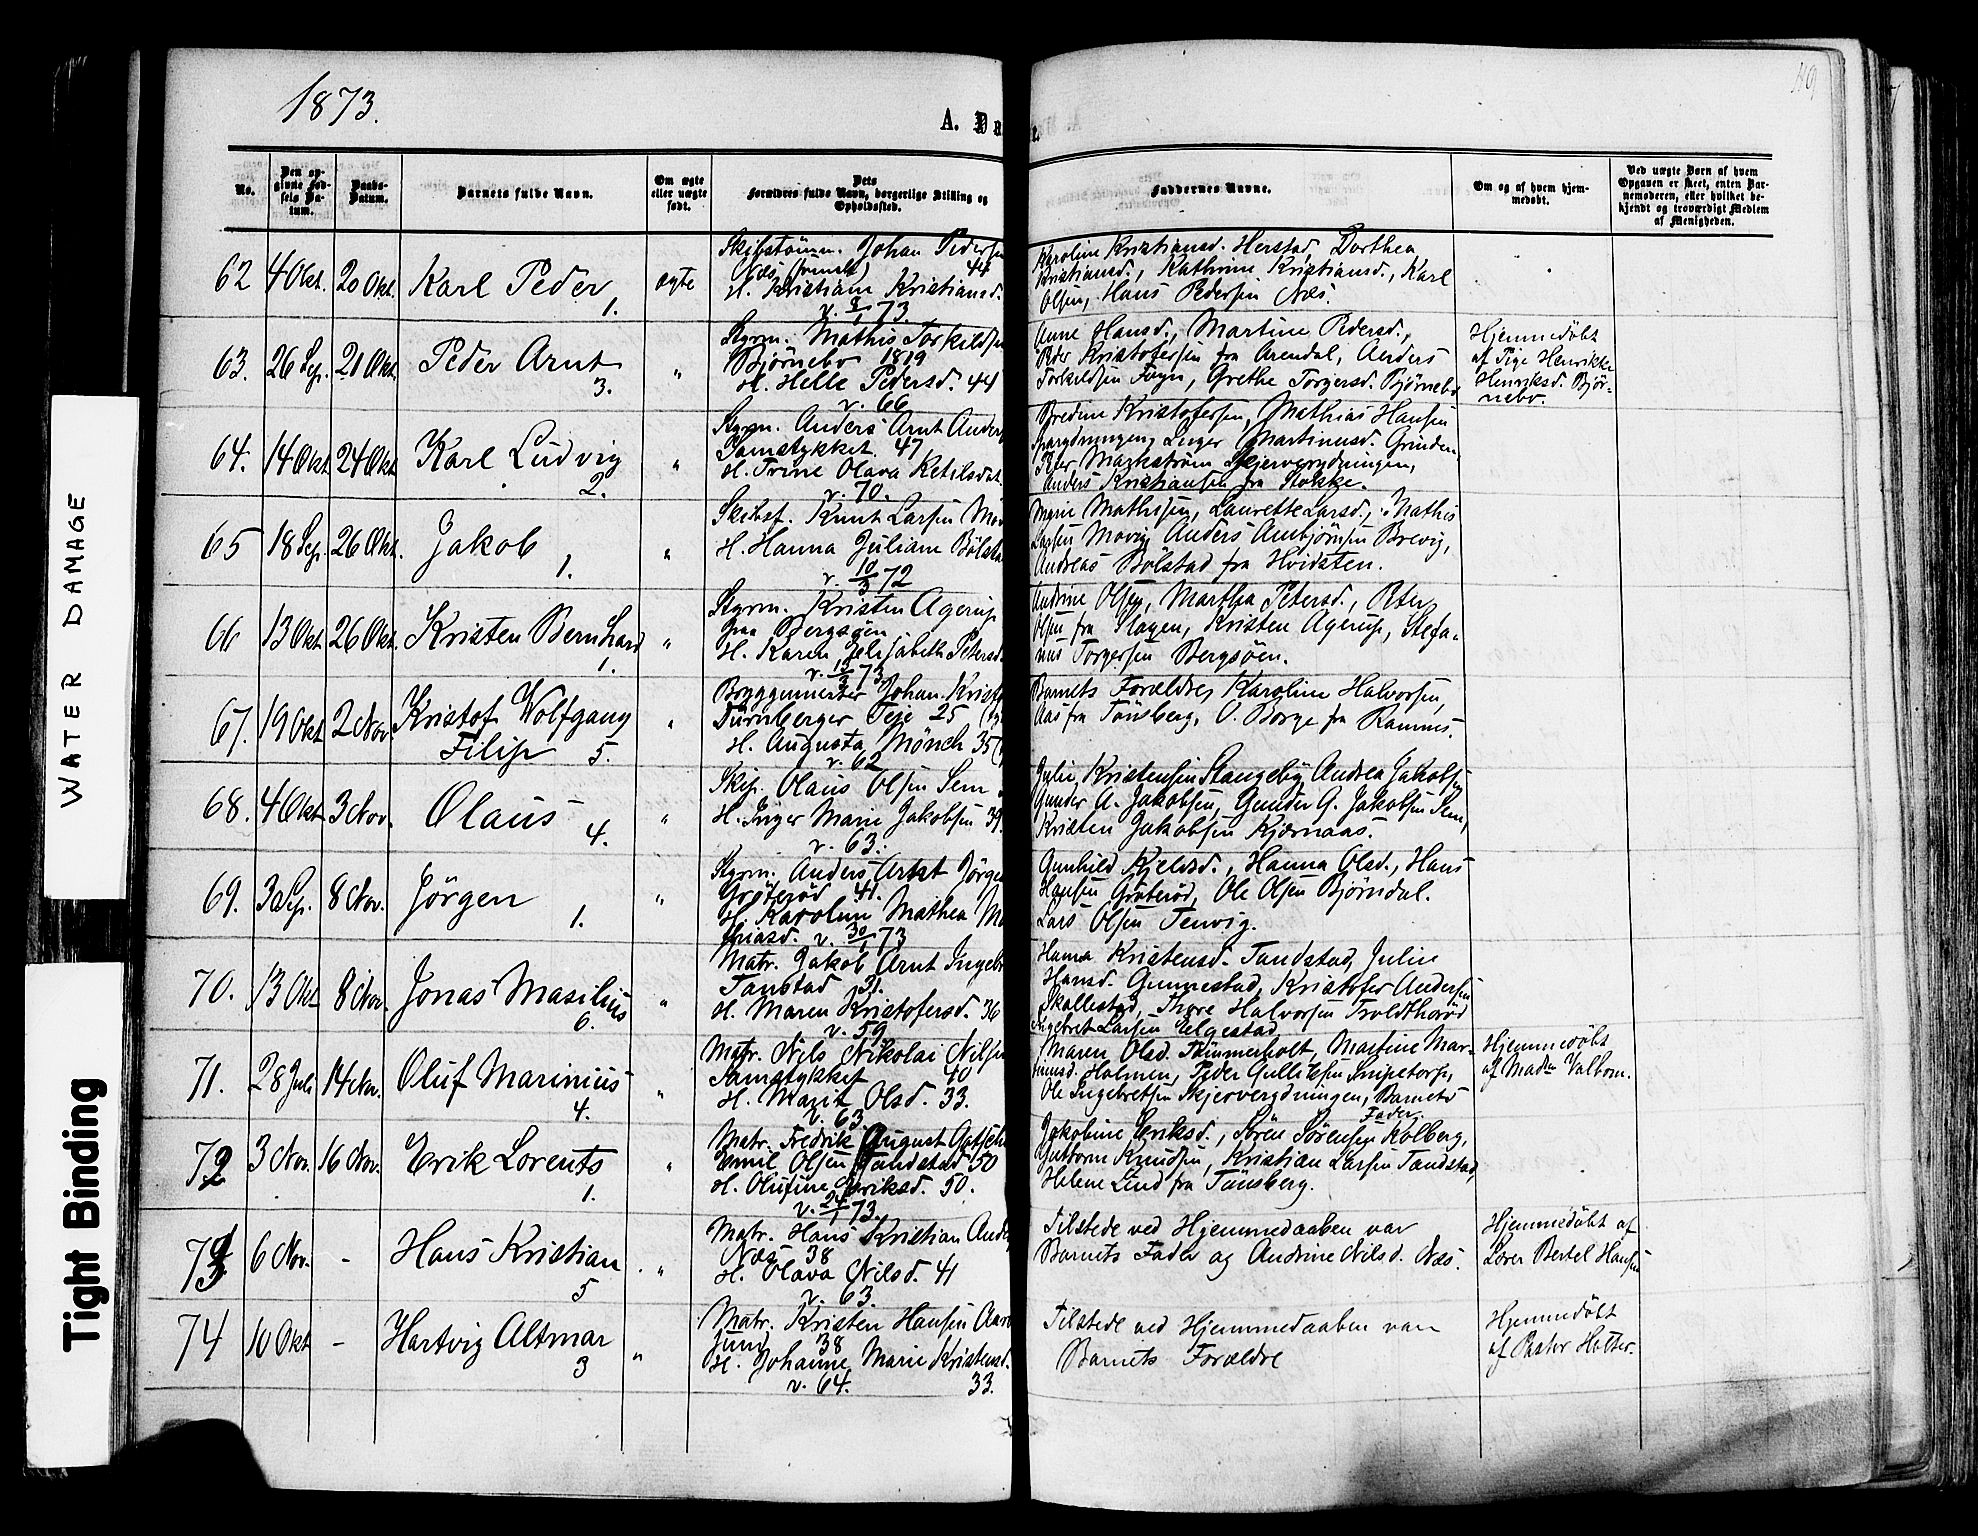 1873.
A. Dø
No.
Den op-
givne Fød-
sels Da-
tum.
Daabs-
Datum.
Barnets fulde Navn.
Om ægte
eller uægte
født.
Dets
Forældres fulde Navn, borgerlige Stilling og
Opholdssted.
Faddernes Navne.
Om og af hvem hjem-
medøbt.
Ved uægte Børn af hvem
Opgaven er skeet, enten Bar-
nemoderen, eller hvilket be-
kjendt og troværdigt Medlem
af Menigheden.
62 4 Okt. 20 Okt. Karl Peder 1. ægte
Skibstømm. Johan Pedersen
Næs 44
H. Kristiane Kristiansd.
v. 8/1 73.
Karoline Kristiansd. Herstad, Dorthea
Kristiansd., Kathrine Kristiansd., Karl
Olsen, Hans Pedersen Næs.
63. 26 Sep. 21 Okt. Peder Arnt 3. "
Styrm. Mathis Torkildsen
Bjørnebo 1819
H. Helle Pedersd. 44
v. 66
Anne Hansd., Martine Pedersd.,
Peder Kristofersen fra Arendal, Anders
Torkildsen Foyn, Grethe Torgersd. Bjørnebo
Hjemmedøbt
af Pige Henrikke
Henriksd. Bjør-
nebo.
64. 14 Okt 24 Okt. Karl Ludvig 2. "
Styrm. Anders Arnt Anders
Tomstykket. 47
H. Trine Olava Ketilsdat
v. 70.
Bredine Kristofersen, Mathias Hansen
Inger Martinusd. Grinden
Peter Markstrøm Skjerverydningen,
Anders Kristiansen fra Stokke.
65 18 Sep. 26 Okt. Jakob 1. "
Skibsf. Knut Larsen Mov
H. Hanna Juliane Bølstad
v. 10/3 72
Marie Mathisen, Laurette Larsd., Mathis
Larsen Movig, Anders Arnbjørnsen Brevig,
Andreas Bølstad fra Hvidsten.
66 13 Okt 26 Okt. Kristen Bernhard 1. "
Styrm. Kristen Agerup
paa Bergsøen
H. Karen Elisabeth Petersd
v. 73
Andrine Olsen, Martha Petersd., Peter
Olsen fra Slagen, Kristen Agerup, Stefa-
nus Torgersen Bergsøen.
67. 19 Okt 2 Nov. Kristof Wolfgang
Filip 5. "
Bryggemester Johan Krist
Dürnberger Teje 25
H. Augusta Mönch 35
v. 62
Barnets Forældre, Karoline Halvorsen,
Aas fra Tønsberg, O. Borge fra Ramnes.
68. 4 Okt 3 Nov. Olaus 4. "
Skip. Olaus Olsen Sem
H. Inger Marie Jakobsen 39
v. 63.
Julie Kristensen Stangeby, Andrea Jakobsen
Gunder A. Jakobsen, Gunder G. Jakobsen Sem,
Kristen Jakobsen Kjærnaas.
69. 3 Sep. 8 Nov. Jørgen 1. "
Styrm. Anders Arnt Jørgen
Grøterød 41.
H. Karoline Mathea Ma
thiasd. v. 30/1 73
Gunhild Kjeldsd., Hanna Olsd., Hans
Hansen Grøterød, Ole Olsen Bjørndal.
Lars Olsen Tenvig.
70. 13 Okt 8 Nov. Jonas Masilius 6. "
Matr. Jakob Arnt Ingebr
Tanstad 31.
H. Maren Kristofersd. 36
v. 59
Hanna Kristensd. Tandstad, Julie
Hansd. Gunnestad, Kristofer Andersen
Skallestad, Thore Halvorsen Troldthorød
Ingebret Larsen Elgestad
71. 28 Juli 14 Nov. Oluf Marinius 4. "
Matr. Nils Nikolai Nilsen
Tomstykket 40
H. Marit Olsd. 33.
v. 63.
Maren Olsd. Tømmerholt, Martine Mar-
tinusd. Holmen, Peder Gulliksen Snipetorp,
Ole Ingebretsen Skjerverydningen, Barnets
Fader.
Hjemmedøbt
af Madm Valbom.
72 3 Nov. 16 Nov. Erik Lorents 1. "
Matr. Fredrik August
Emil Olsen Tandstad 50
H. Olufine Eriksd. 50.
v. 24/1 73.
Jakobine Eriksd., Søren Sørensen Kolberg,
Guttorm Knudsen, Kristian Larsen Tandstad,
Helene Lind fra Tønsberg.
73 6 Nov. - Hans Kristian 5 "
Matr. Hans Kristian Ander
Næs 38
H. Olava Nilsd. 41
v. 63.
Tilstede ved Hjemmedaaben var
Barnets Fader og Andrine Nilsd. Næs.
Hjemmedøbt af
Lærer Bertel Hansen
74 10 Okt - Hartvig Altmar 3 "
Matr. Kristen Hansen Aarø
sund 38
H. Johanne Marie Kristensd.
v. 64. 33.
Tilstede ved Hjemmedaaben var
Barnets Forældre
Hjemmedøbt
af Pastor Holter.
WATER DAMAGE
Tight Binding